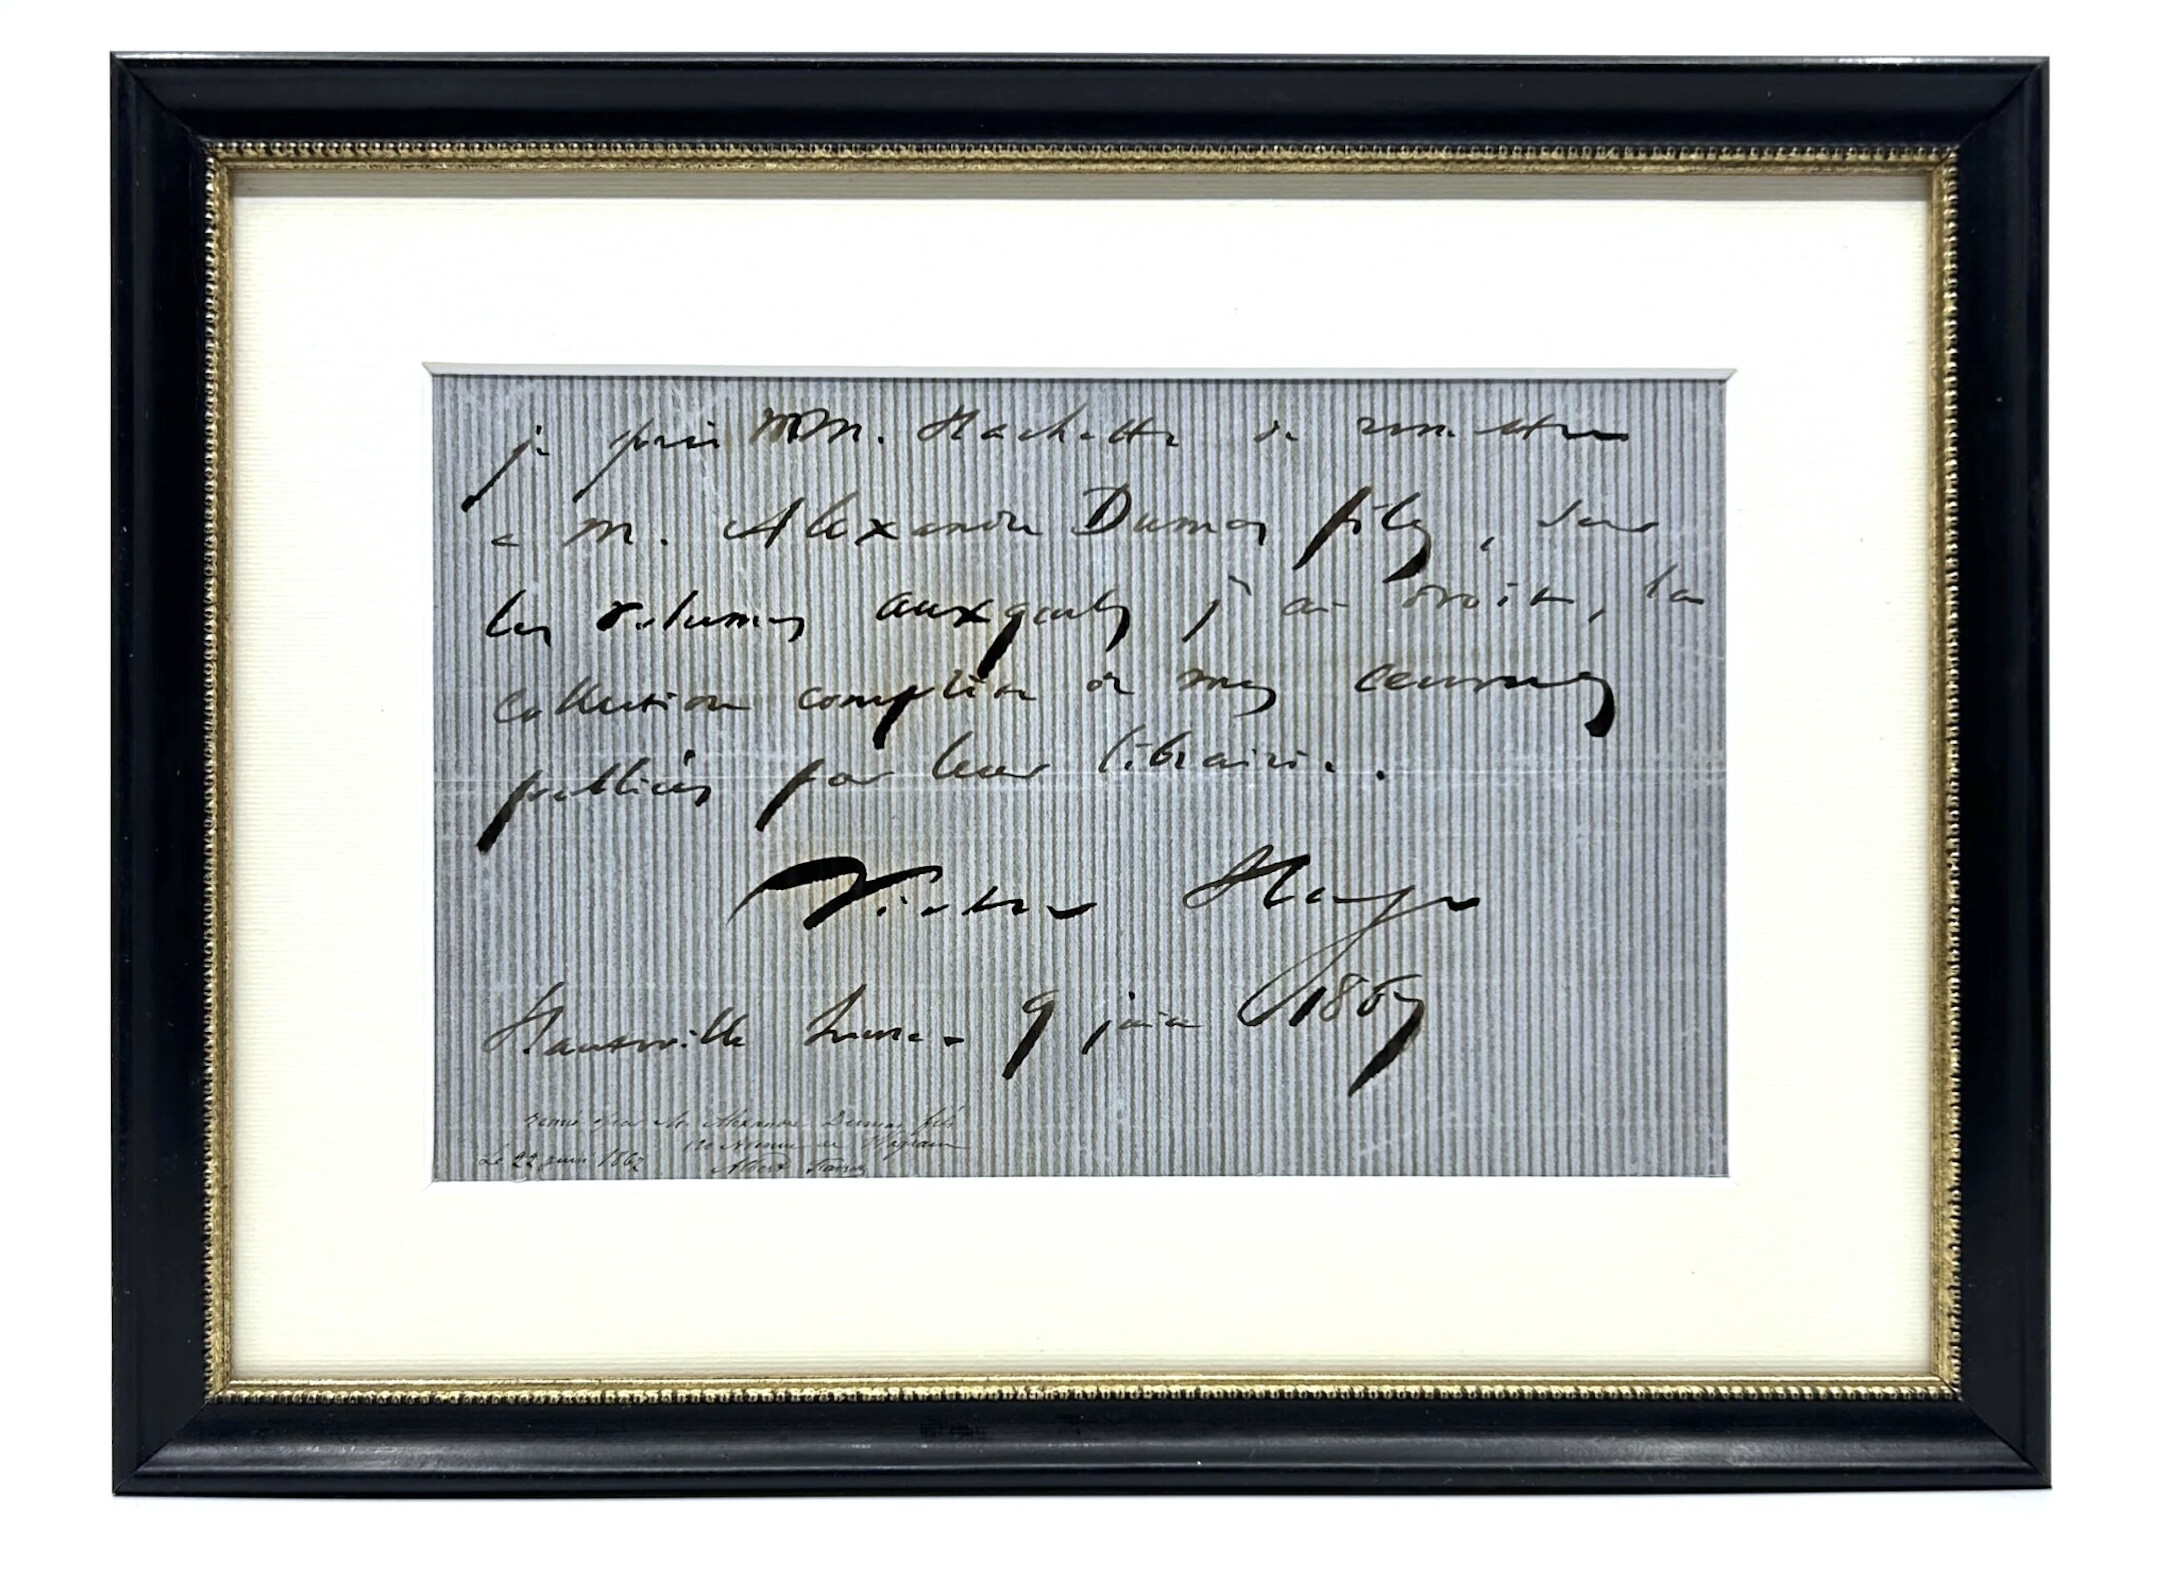 je prie MM. Hachette de remettre
à M. Alexandre Dumas fils, sur
les volumes auxquels j'ai droit, la
collection complète de mes œuvres
publiées par leur librairie.
Victor Hugo
Hauteville house - 9 juin 1867
remis par M. Alexandre Dumas fils
avenue de Wagram
Le 22 juin 1867 Albert